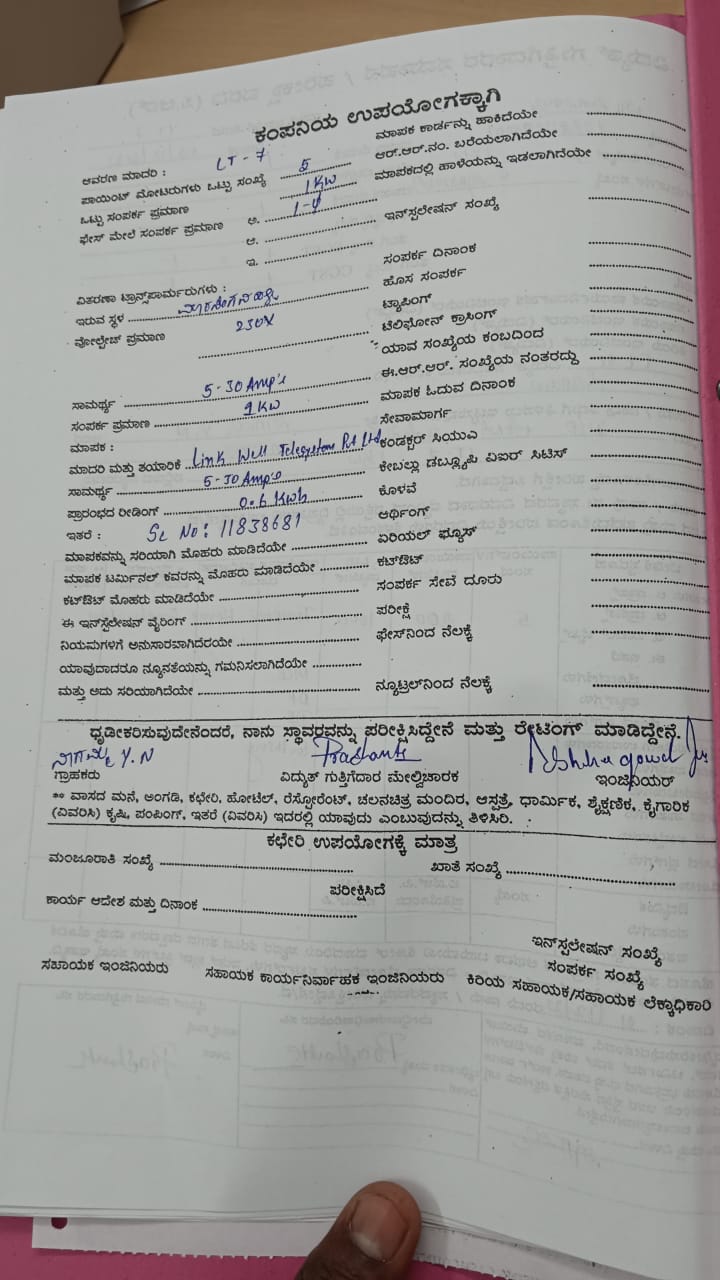 ಕಂಪನಿಯ ಉಪಯೋಗಕ್ಕಾಗಿ
ಆವರಣ ಮಾದರಿ : LT-7
ಪಾಯಿಂಟ್ ಮೋಟರುಗಳು ಒಟ್ಟು ಸಂಖ್ಯೆ 5
ಒಟ್ಟು ಸಂಪರ್ಕ ಪ್ರಮಾಣ 1 KW
ಫೇಸ್ ಮೇಲೆ ಸಂಪರ್ಕ ಪ್ರಮಾಣ ಅ. 1-φ
ಆ.
ಇ.
ವಿತರಣಾ ಟ್ರಾನ್ಸ್‌ಪಾರ್ಮರುಗಳು :
ಇರುವ ಸ್ಥಳ
ವೋಲ್ಟೇಚ್ ಪ್ರಮಾಣ 230V
ಸಾಮರ್ಥ್ಯ 5-30 Amp's
ಸಂಪರ್ಕ ಪ್ರಮಾಣ 1 KW
ಮಾಪಕ :
ಮಾದರಿ ಮತ್ತು ತಯಾರಿಕೆ Link Well Telesystem Pvt Ltd
ಸಾಮರ್ಥ್ಯ 5-30 Amp's
ಪ್ರಾರಂಭದ ರೀಡಿಂಗ್ 0.6 Kwh
ಇತರೆ : SL No: 11838681
ಮಾಪಕವನ್ನು ಸರಿಯಾಗಿ ಮೊಹರು ಮಾಡಿದೆಯೇ
ಮಾಪಕ ಟರ್ಮಿನಲ್ ಕವರನ್ನು ಮೊಹರು ಮಾಡಿದೆಯೇ
ಕಟ್‌ಔಟ್ ಮೊಹರು ಮಾಡಿದೆಯೇ
ಈ ಇನ್‌ಸ್ಟೆಲೇಷನ್ ವೈರಿಂಗ್
ನಿಯಮಗಳಿಗೆ ಅನುಸಾರವಾಗಿದೆರಯೇ
ಯಾವುದಾದರೂ ನ್ಯೂನತೆಯನ್ನು ಗಮನಿಸಲಾಗಿದೆಯೇ
ಮತ್ತು ಅದು ಸರಿಯಾಗಿದೆಯೇ
ಮಾಪಕ ಕಾರ್ಡನ್ನು ಹಾಕಿದೆಯೇ
ಆರ್.ಆರ್.ನಂ. ಬರೆಯಲಾಗಿದೆಯೇ
ಮಾಪಕದಲ್ಲಿ ಹಾಳೆಯನ್ನು ಇಡಲಾಗಿದೆಯೇ
ಇನ್‌ಸ್ಪಲೇಷನ್ ಸಂಖ್ಯೆ
ಸಂಪರ್ಕ ದಿನಾಂಕ
ಹೊಸ ಸಂಪರ್ಕ
ಟ್ಯಾಪಿಂಗ್
ಟೆಲಿಫೋನ್ ಕ್ರಾಸಿಂಗ್
ಯಾವ ಸಂಖ್ಯೆಯ ಕಂಬದಿಂದ
ಈ.ಆರ್.ಆರ್. ಸಂಖ್ಯೆಯ ನಂತರದ್ದು
ಮಾಪಕ ಓದುವ ದಿನಾಂಕ
ಸೇವಾಮಾರ್ಗ
ಕಂಡಕ್ಟರ್ ಸಿಯುಎ
ಕೇಬಲ್ಲು ಡಬ್ಲ್ಯೂಪಿ ವಿಐರ್ ಸಿಟಿಸ್
ಕೊಳವೆ
ಆರ್ಥಿಂಗ್
ಏರಿಯಲ್ ಫ್ಯೂಸ್
ಕಟ್‌ಔಟ್
ಸಂಪರ್ಕ ಸೇವೆ ದೂರು
ಪರೀಕ್ಷೆ
ಫೇಸ್‌ನಿಂದ ನೆಲಕ್ಕೆ
ನ್ಯೂಟ್ರಲ್‌ನಿಂದ ನೆಲಕ್ಕೆ
ಧೃಡೀಕರಿಸುವುದೇನೆಂದರೆ, ನಾನು ಸ್ಥಾವರವನ್ನು ಪರೀಕ್ಷಿಸಿದ್ದೇನೆ ಮತ್ತು ರೇಟಿಂಗ್ ಮಾಡಿದ್ದೇನೆ.
Y.N Prashanth
ಗ್ರಾಹಕರು ವಿದ್ಯುತ್ ಗುತ್ತಿಗೆದಾರ ಮೇಲ್ವಿಚಾರಕ ಇಂಜಿನಿಯರ್
** ವಾಸದ ಮನೆ, ಅಂಗಡಿ, ಕಛೇರಿ, ಹೋಟೆಲ್, ರೆಸ್ಟೋರೆಂಟ್, ಚಲನಚಿತ್ರ ಮಂದಿರ, ಆಸ್ಪತ್ರೆ, ಧಾರ್ಮಿಕ, ಶೈಕ್ಷಣಿಕ, ಕೈಗಾರಿಕ
(ವಿವರಿಸಿ) ಕೃಷಿ, ಪಂಪಿಂಗ್, ಇತರೆ (ವಿವರಿಸಿ) ಇದರಲ್ಲಿ ಯಾವುದು ಎಂಬುವುದನ್ನು ತಿಳಿಸಿರಿ.
ಕಛೇರಿ ಉಪಯೋಗಕ್ಕೆ ಮಾತ್ರ
ಮಂಜೂರಾತಿ ಸಂಖ್ಯೆ ಖಾತೆ ಸಂಖ್ಯೆ
ಪರೀಕ್ಷಿಸಿದೆ
ಕಾರ್ಯ ಆದೇಶ ಮತ್ತು ದಿನಾಂಕ
ಇನ್‌ಸ್ಪಲೇಷನ್ ಸಂಖ್ಯೆ
ಸಂಪರ್ಕ ಸಂಖ್ಯೆ
ಸಹಾಯಕ ಇಂಜಿನಿಯರು ಸಹಾಯಕ ಕಾರ್ಯನಿರ್ವಾಹಕ ಇಂಜಿನಿಯರು ಕಿರಿಯ ಸಹಾಯಕ/ಸಹಾಯಕ ಲೆಕ್ಕಾಧಿಕಾರಿ